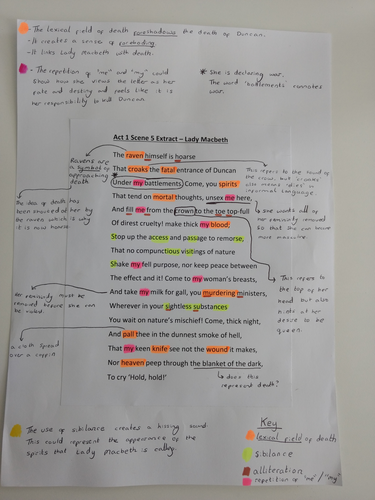 The lexical field of death foreshadows the death of Duncan.
- It creates a sense of foreboding
- It links Lady Macbeth with death.
- The repetition of "me" and "my" could
show how she views the letter as her
fate and destiny and feels like it is
her responsibility to kill Duncan.
* She is declaring war.
The word 'battlements' connotes
war.
Act 1 Scene 5 Extract – Lady Macbeth
Ravens are
a symbol of
approaching
death
The raven himself is hoarse
That croaks the fatal entrance of Duncan
Under my battlements. Come, you spirits
That tend on mortal thoughts, unsex me here,
And fill me from the crown to the toe top-full
Of direst cruelty! make thick my blood;
Stop up the access and passage to remorse,
That no compunctious visitings of nature
Shake my fell purpose, nor keep peace between
The effect and it! Come to my woman's breasts,
And take my milk for gall, you murdering ministers,
Wherever in your sightless substances
You wait on nature's mischief! Come, thick night,
And pall thee in the dunnest smoke of hell,
That my keen knife see not the wound it makes,
Nor heaven peep through the blanket of the dark,
To cry 'Hold, hold!'
This refers to the sound of
the crow, but 'croaks'
also means 'dies' in
informal language.
She wants all of
her femininity removed
so that she can become
more masculine.
The idea of death has
been smoked at her by
the raven which is why
it is now hoarse
This refers to
the top of her
head but also
hints at her
desire to be
queen.
Her femininity must be
removed before she can
be
a cloth spread
over a coffin
does this
represent death?
The use of sibilance creates a hissing sound.
This could represent the appearance of the
spirits that Lady Macbeth is calling.
Key
lexical field of death
sibilance
alliteration
repetition of 'me' / "my"